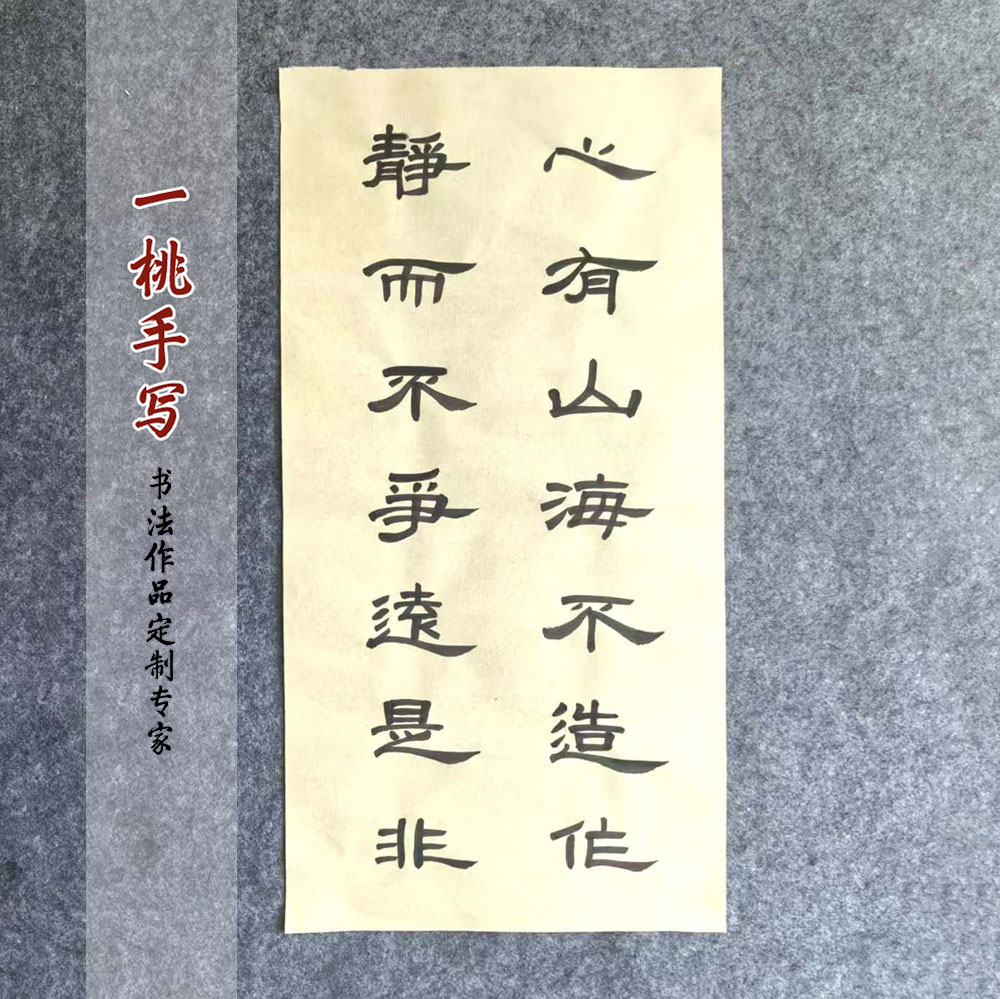 心有山海不造作
静而不爭遠是非
一桃手写
书法作品定制专家